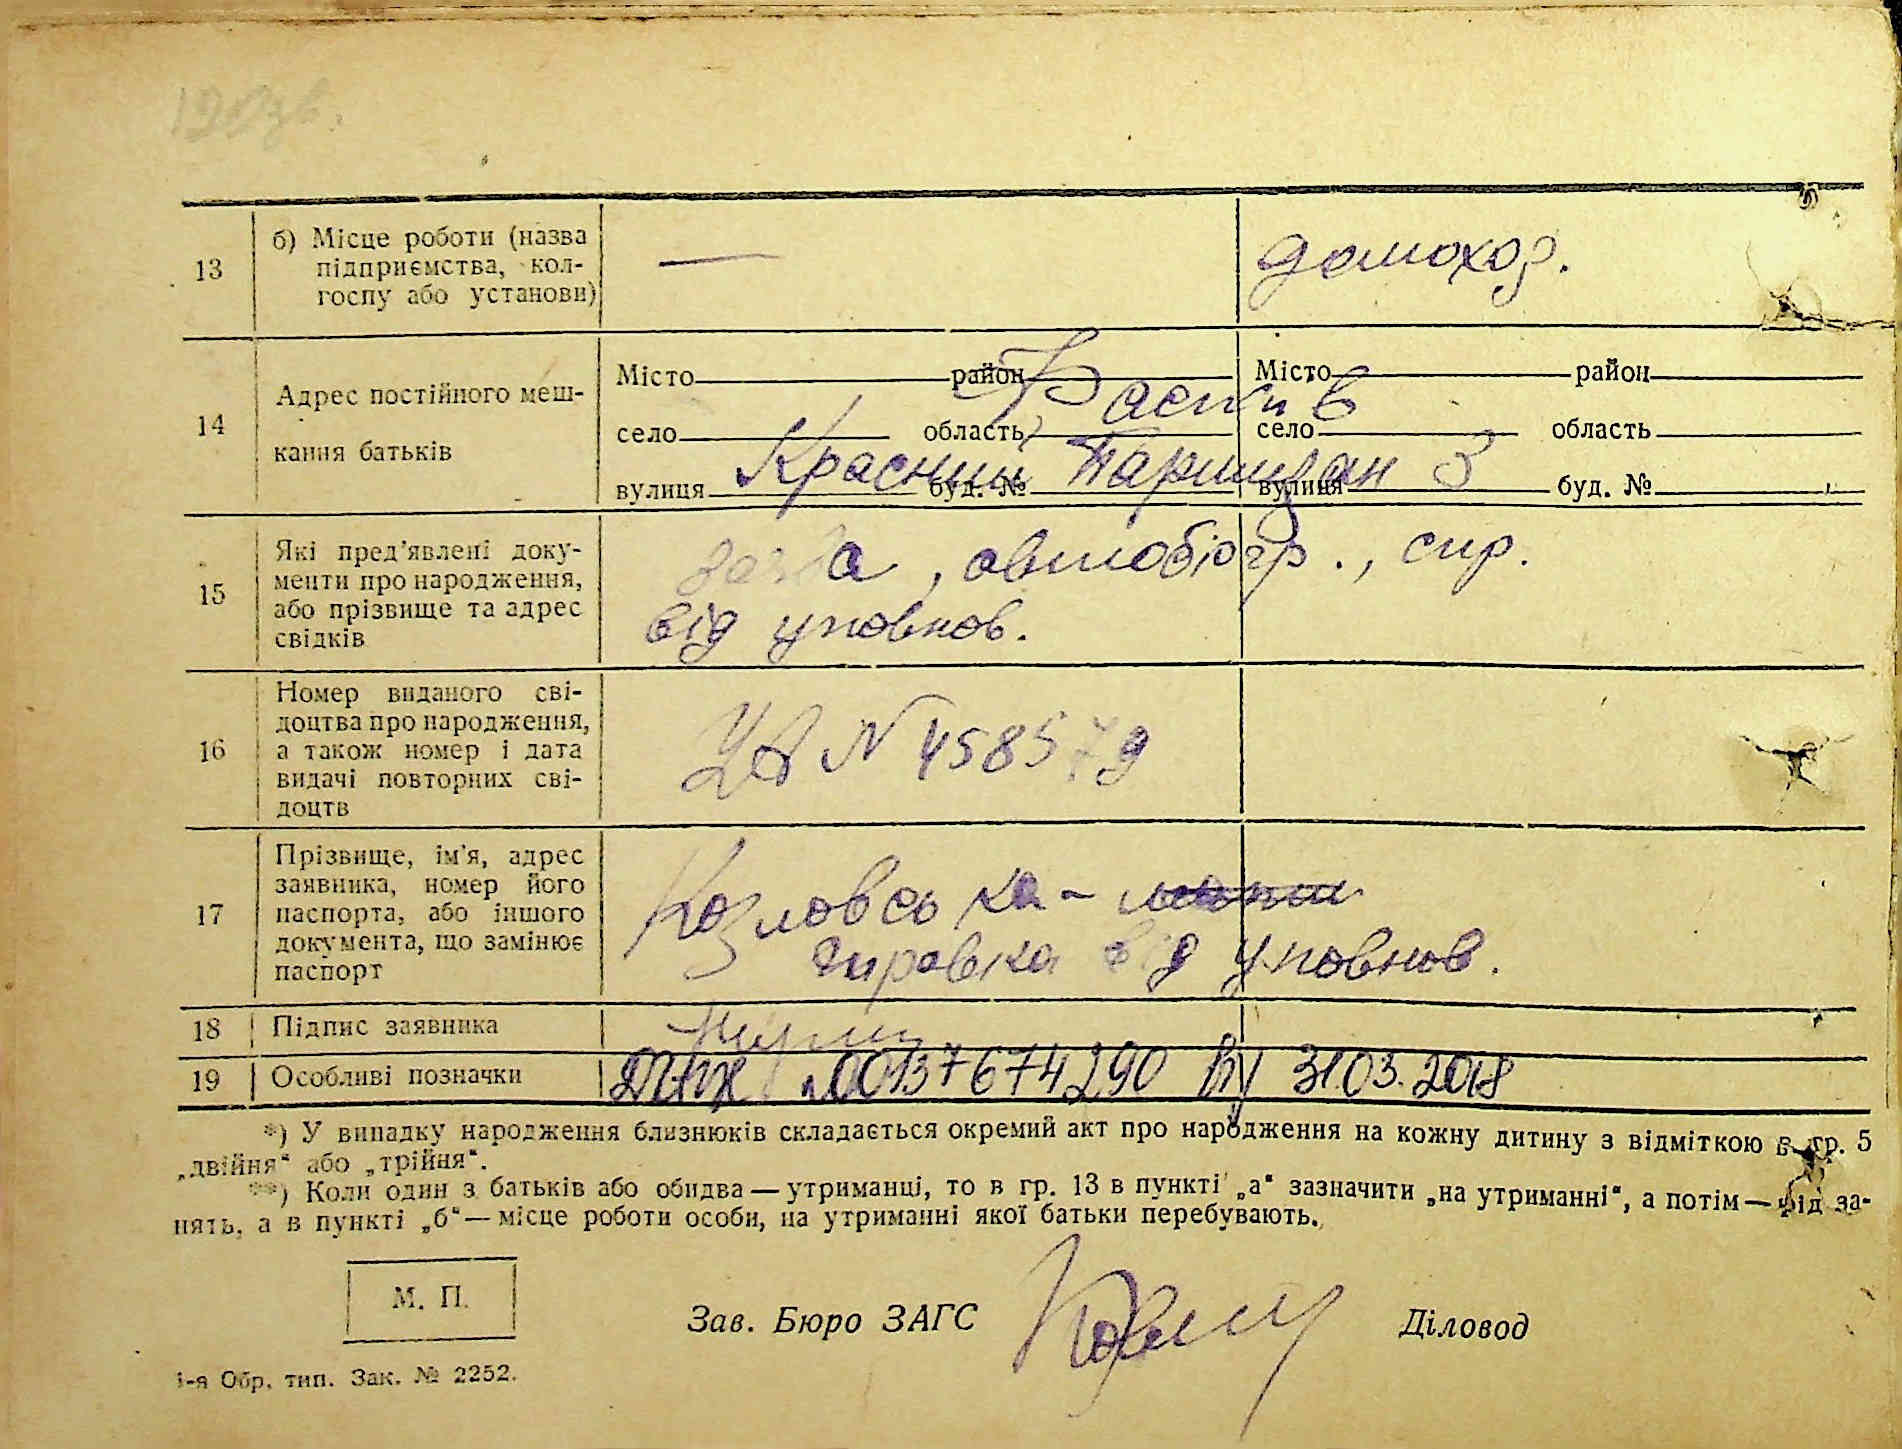 13 б) Місце роботи (назва підприємства, колгоспу або установи) — домохоз.
14 Адрес постійного мешкання батьків
Місто район Місто район
Фастів
село область село область
Красний Партизан 3
вулиця буд. № вулиця буд. №
15 Які пред’явлені документи про народження, або прізвище та адрес свідків
заява, автобіогр., спр.
від уповнов.
16 Номер виданого свідоцтва про народження, а також номер і дата видачі повторних свідоцтв
N 458579
17 Прізвище, ім’я, адрес заявника, номер його паспорта, або іншого документа, що замінює паспорт
Козловська - мати
справка від уповнов.
18 Підпис заявника
19 Особливі позначки 00137674290 31.03.2018
*) У випадку народження близнюків складається окремий акт про народження на кожну дитину з відміткою в гр. 5
„двійня“ або „трійня“.
**) Коли один з батьків або обидва — утриманці, то в гр. 13 в пункті „а“ зазначити „на утриманні“, а потім — рід за-
нять, а в пункті „б“ — місце роботи особи, на утриманні якої батьки перебувають.
М. П.
Зав. Бюро ЗАГС Діловод
1-я Обр. тип. Зак. № 2252.